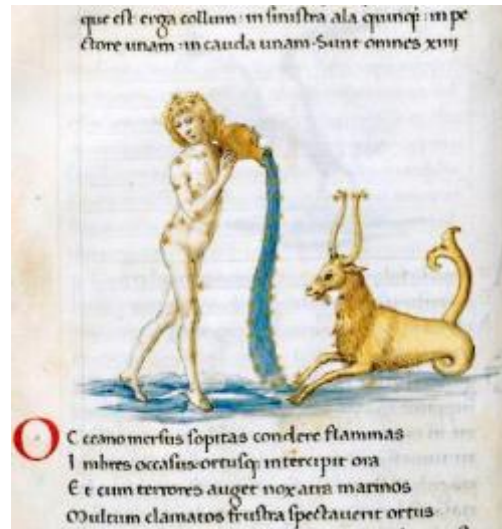 que est erga collum: in sinistra ala quinqȝ: in pe
ctore unam: in cauda unam. Sunt omnes xiiij
OCceano mersus sopitas condere flammas
Imbres occasus: ortusqȝ intercipit ora
Et cum terrores auget nox atra marinos
Multum clamatos frustra spectauerit ortus